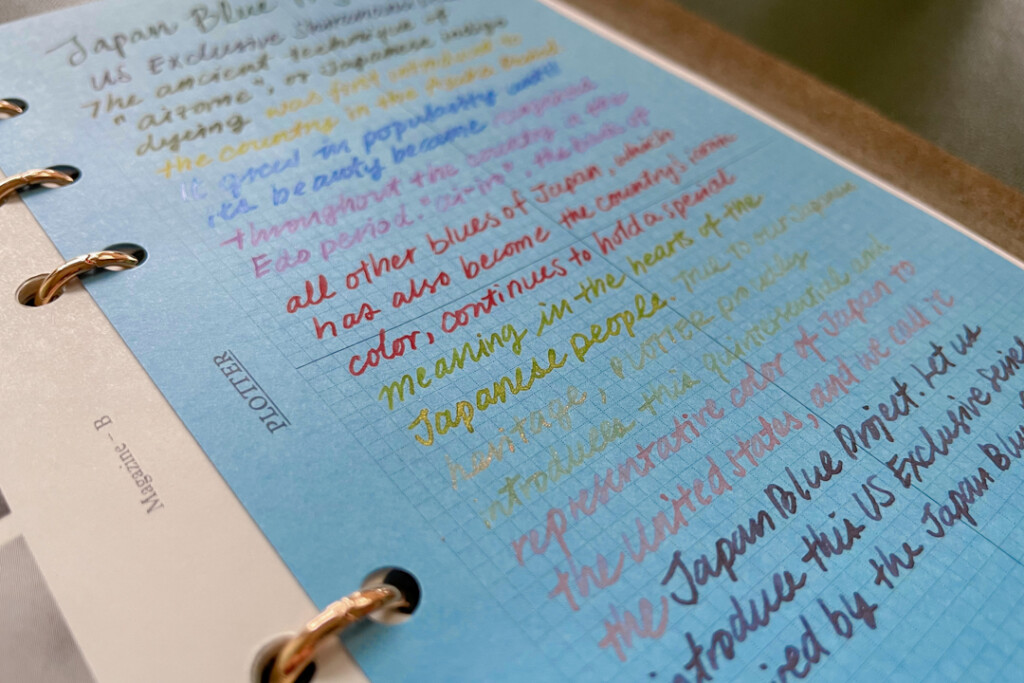 Japan Blue
US Exclusive Shimamomo
The ancient technique of
"aizome", or Japanese indigo
dyeing was first introduced to
the country in the
It grew in popularity until
its beauty became
throughout the country in the
Edo period. "ai-iro", the basis of
all other blues of Japan, which
has also become the country's iconic
color, continues to hold a special
meaning in the hearts of the
Japanese people. True to our Japanese
heritage, PLOTTER proudly
introduces this quintessential and
representative color of Japan to
the United States, and we call it
the Japan Blue Project. Let us
introduce this US Exclusive Series
ired by the Japan Blue
PLOTTER
Magazine - B